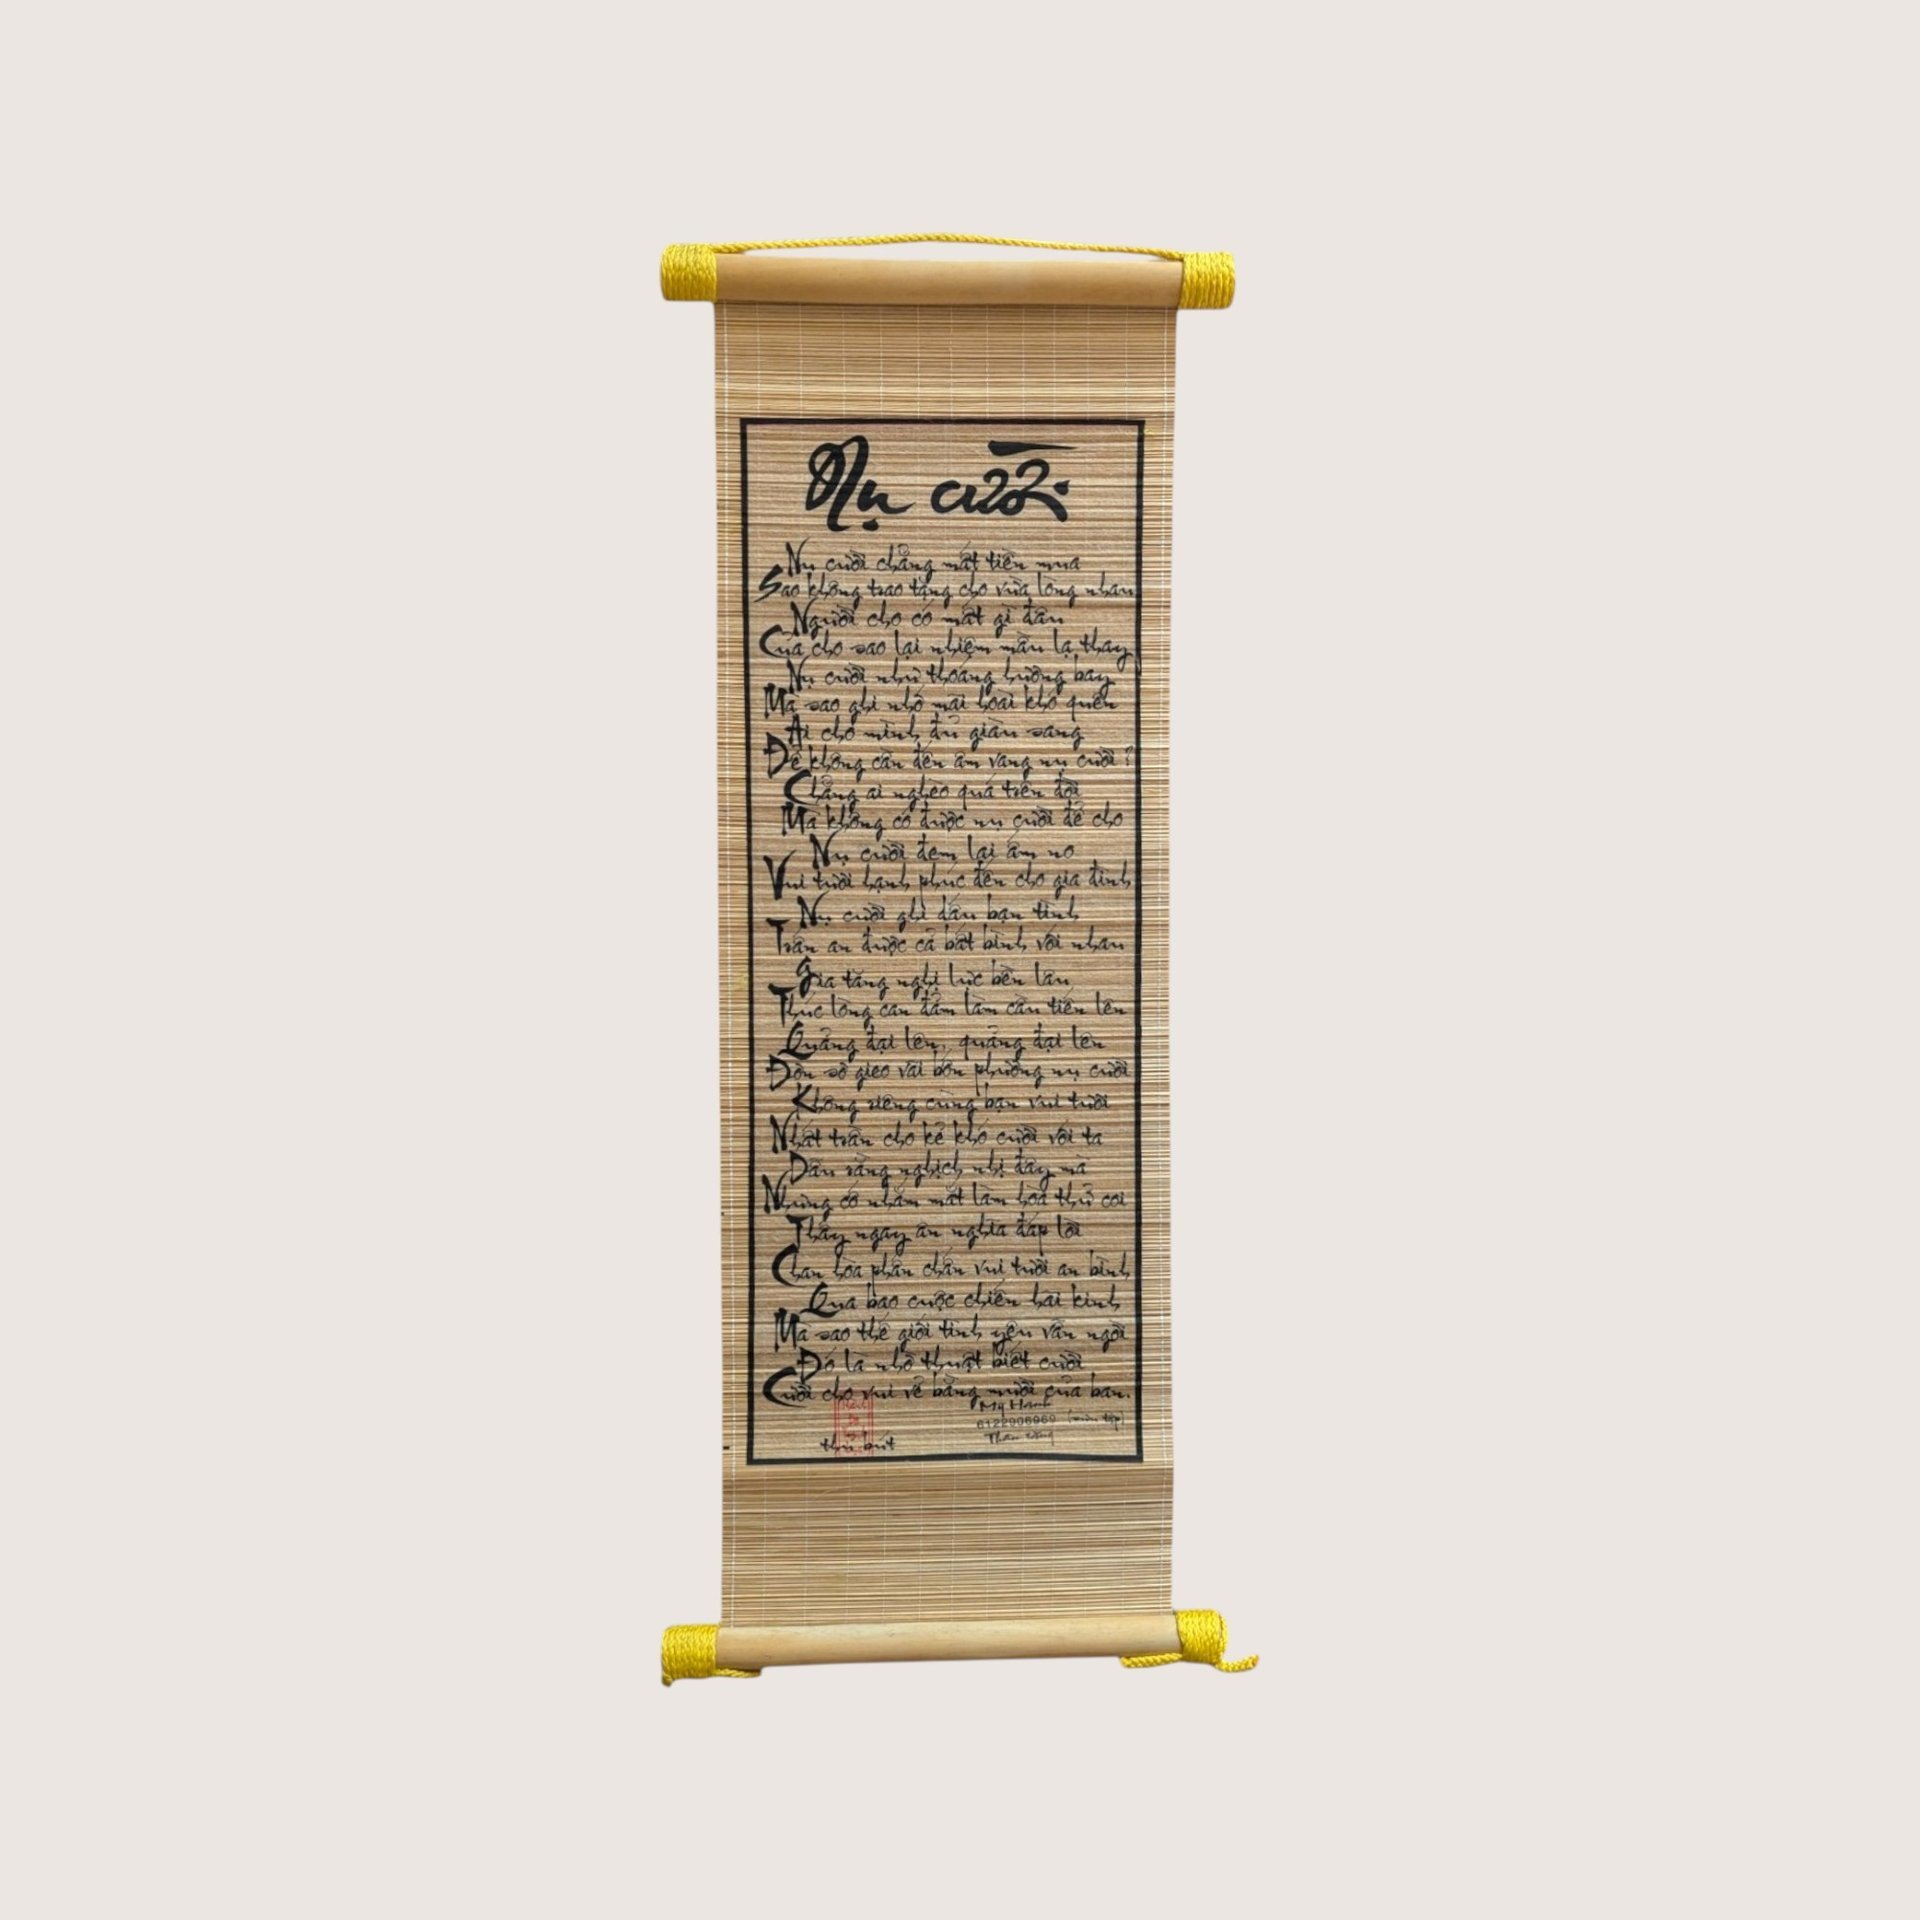 Nụ cười
Nụ cười chẳng mất tiền mua
Sao không trao tặng cho vừa lòng nhau
Người cho có mất gì đâu
Của cho sao lại nhiệm mầu lạ thay
Nụ cười như thoáng hương bay
Mà sao ghi nhớ mãi hoài khó quên
Ai cho mình đủ giàu sang
Để không cần đến âm vang nụ cười ?
Chẳng ai nghèo quá trên đời
Mà không có được nụ cười để cho
Nụ cười đem lại ấm no
Vui tươi hạnh phúc đến cho gia đình
Nụ cười ghi dấu bạn tình
Trấn an được cả bất bình với nhau
Gia tăng nghị lực bền lâu
Thúc lòng can đảm làm cầu tiến lên
Quảng đại lên, quảng đại lên
Đơn sơ gieo vãi bốn phương nụ cười
Không riêng cùng bạn vui tươi
Nhất trần cho kẻ khó cười với ta
Dẫu rằng nghịch nhị đấy mà
Nhưng cố nhắm mắt làm hòa thử coi
Thấy ngay ân nghĩa đáp lời
Chan hòa phấn chấn vui tươi an bình
Qua bao cuộc chiến hãi kinh
Mà sao thế giới tình yêu vẫn ngời
Đó là nhờ thuật biết cười
Cười cho vui vẻ bằng mười của ban.
Mỹ Hạnh
6122906969 (sưu tập)
thủ bút